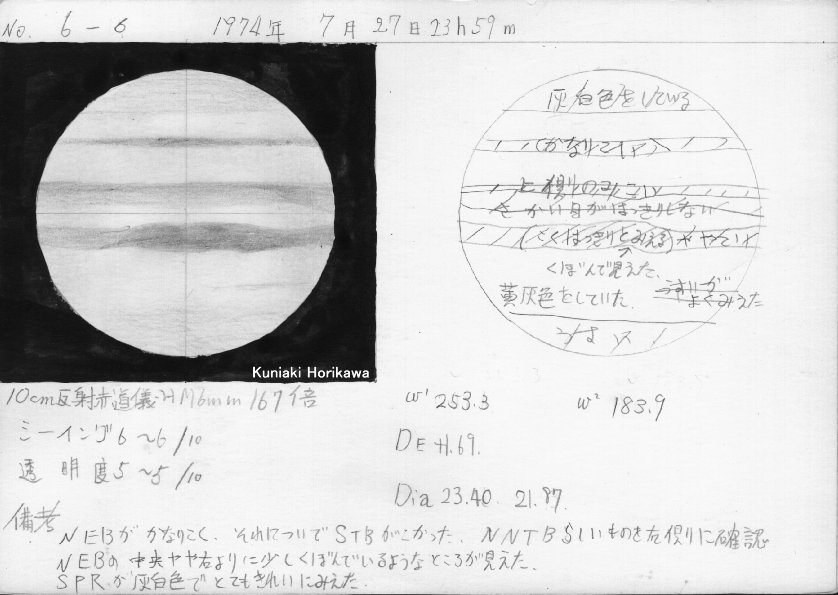 No. 6-6 1974年 7月27日23h59m
灰白色をしている
(かなりこい)
とぎれのみにくい
さかい目がはっきりしない
くぼんで見えた。
黄灰色をしていた。
うすいが
よくみえた
Kuniaki Horikawa
10cm反射赤道儀 HM6mm 167倍
ω¹ 253.3 ω² 183.9
シーイング6～6/10
DE +1.69.
透明度5～5/10
Dia 23.40 21.87.
備考
NEBがかなりこく、それについでSTBがこかった。NNTBらしいものを左側りに確認
NEBの中央やや右よりに少しくぼんでいるようなところが見えた。
SPRが灰白色でとてもきれいにみえた。